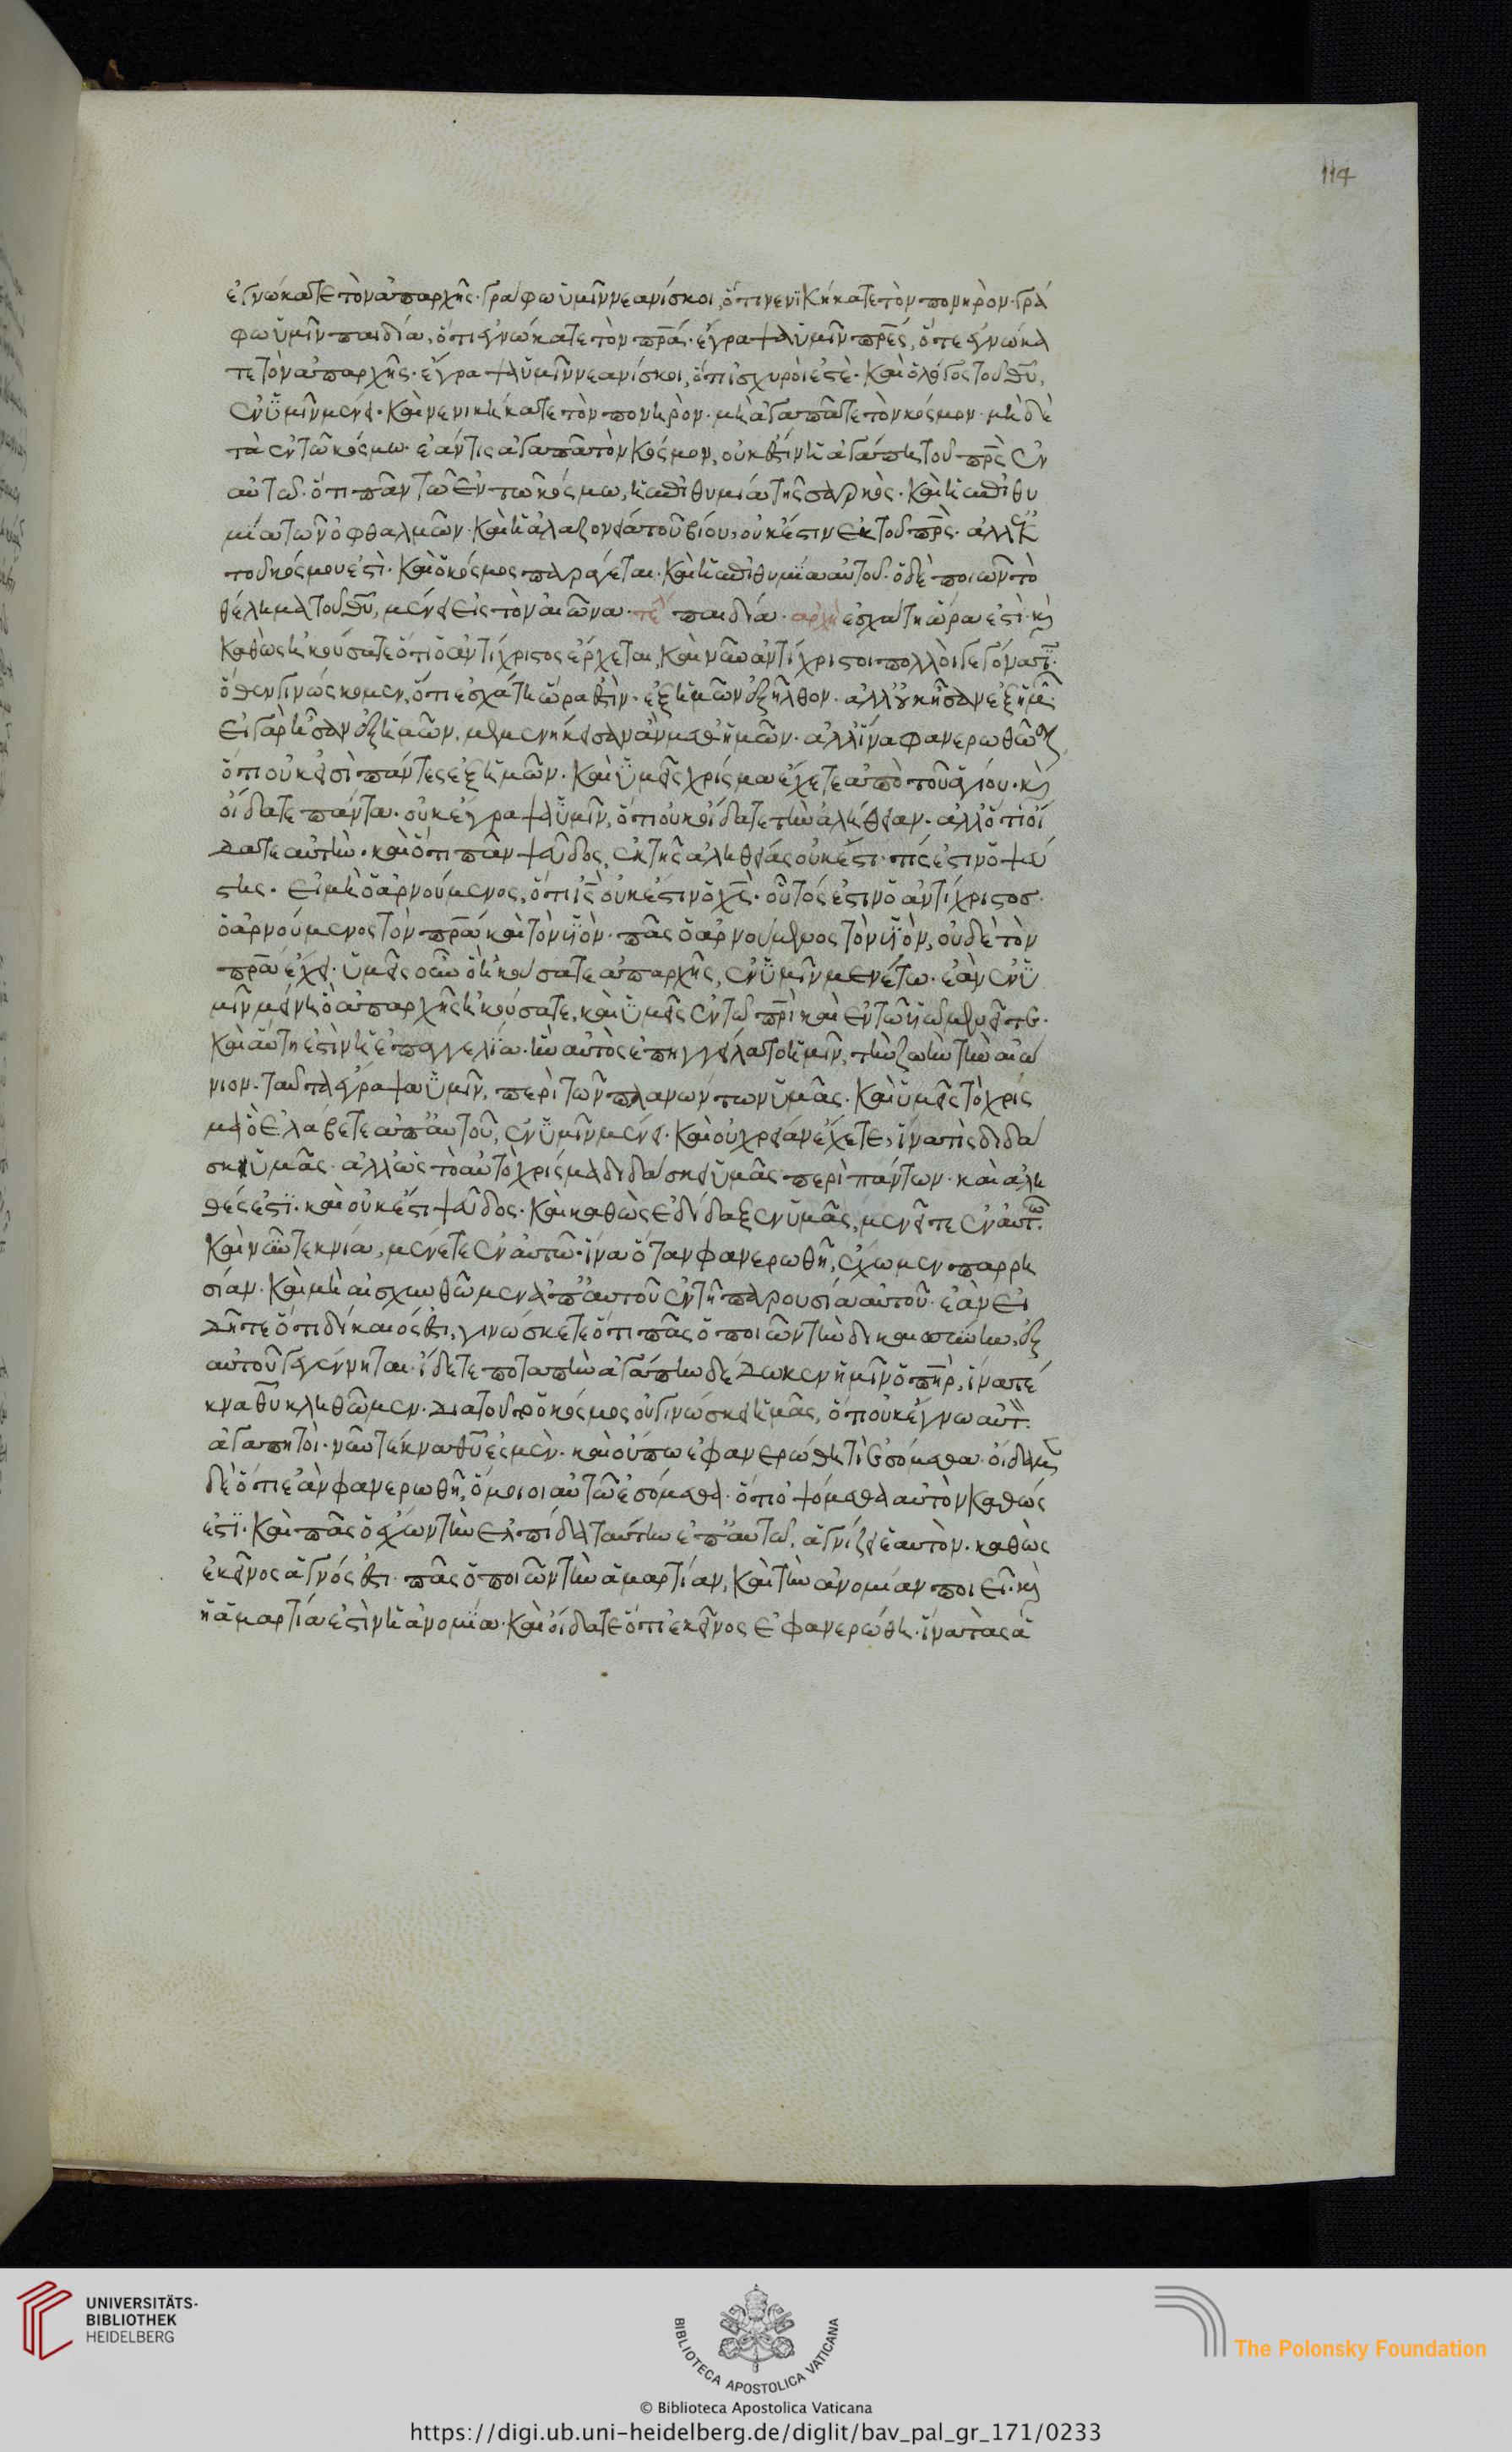 114
ἐγνώκατε τὸν ἀπαρχῆς· γράφω ὑμῖν νεανίσκοι, ὅτι νενικήκατε τὸν πονηρὸν· γρά
φω ὑμῖν παιδία, ὅτι ἐγνώκατε τὸν πρα· ἔγραψα ὑμῖν πρες, ὅτι ἐγνώκα
τε τὸν ἀπαρχῆς· ἔγραψα ὑμῖν νεανίσκοι, ὅτι ἰσχυροὶ ἐστὲ· καὶ ὁ λόγος τοῦ θυ,
ἐν ὑμῖν μένει· καὶ νενικήκατε τὸν πονηρὸν· μὴ ἀγαπᾶτε τὸν κόσμον· μὴ δὲ
τὰ ἐν τῶ κόσμω· ἐάν τις ἀγαπᾶ τὸν κόσμον, οὐκ ἔστιν ἡ ἀγάπη τοῦ πρς ἐν
αὐτῶ· ὅτι πᾶν τὸ ἐν τῶ κόσμω, ἡ ἐπιθυμία τῆς σαρκὸς· καὶ ἡ ἐπιθυ
μία τῶν ὀφθαλμῶν· καὶ ἡ ἀλαζονεία τοῦ βίου, οὐκ ἔστιν ἐκ τοῦ πρς· ἀλλ ἐκ
τοῦ κόσμου ἐστὶ· καὶ ὁ κόσμος παράγεται· καὶ ἡ ἐπιθυμία αὐτοῦ· ὁ δὲ ποιῶν τὸ
θέλημα τοῦ θυ, μένει εἰς τὸν αἰῶνα· τε παιδία· αρχη ἐσχάτη ὥρα ἐστὶ· κ
καθὼς ἠκούσατε ὅτι ὁ ἀντίχριστος ἔρχεται, καὶ νῦν ἀντίχριστοι πολλοὶ γεγόνασι·
ὅθεν γινώσκομεν, ὅτι ἐσχάτη ὥρα ἐστὶν· ἐξ ἡμῶν ἐξῆλθον· ἀλλ οὐκ ἦσαν ἐξ ἡμ·
εἰ γὰρ ἦσαν ἐξ ἡμῶν, μεμενήκεισαν ἂν μεθ ἡμῶν· ἀλλ ἵνα φανερωθῶσιν
ὅτι οὐκ εἰσὶ πάντες ἐξ ἡμῶν· καὶ ὑμεῖς χρίσμα ἔχετε ἀπὸ τοῦ ἁγίου· κ
οἴδατε πάντα· οὐκ ἔγραψα ὑμῖν, ὅτι οὐκ οἴδατε τὴν ἀλήθειαν· ἀλλ ὅτι οἴ
δατε αὐτὴν· καὶ ὅτι πᾶν ψεῦδος, ἐκ τῆς ἀληθείας οὐκ ἔστι· τίς ἐστιν ὁ ψεύ
στης· εἰ μὴ ὁ ἀρνούμενος, ὅτι ις οὐκ ἔστιν ὁ χς· οὗτός ἐστιν ὁ ἀντίχριστος·
ὁ ἀρνούμενος τὸν πρα καὶ τὸν υἱὸν· πᾶς ὁ ἀρνούμενος τὸν υἱὸν, οὐδὲ τὸν
πρα ἔχει· ὑμεῖς οὖν ὃ ἠκούσατε ἀπαρχῆς, ἐν ὑμῖν μενέτω· ἐὰν ἐν ὑ
μῖν μείνη ὃ ἀπαρχῆς ἠκούσατε, καὶ ὑμεῖς ἐν τῶ πρι καὶ ἐν τῶ υἱῶ μενεῖτε·
καὶ αὕτη ἐστὶν ἡ ἐπαγγελία· ἣν αὐτὸς ἐπηγγείλατο ἡμῖν, τὴν ζωὴν τὴν αἰώ
νιον· ταῦτα ἔγραψα ὑμῖν, περὶ τῶν πλανώντων ὑμᾶς· καὶ ὑμεῖς τὸ χρίσ
μα ὃ ἐλάβετε ἀπ αὐτοῦ, ἐν ὑμῖν μένει· καὶ οὐ χρείαν ἔχετε, ἵνα τὶς διδά
σκη ὑμᾶς· ἀλλ ὡς τὸ αὐτὸ χρίσμα διδάσκει ὑμᾶς περὶ πάντων· καὶ ἀλη
θές ἐστι· καὶ οὐκ ἔστι ψεῦδος· καὶ καθὼς ἐδίδαξεν ὑμᾶς, μενεῖτε ἐν αὐτῶ·
καὶ νῦν τεκνία, μένετε ἐν αὐτῶ· ἵνα ὅταν φανερωθῆ, ἔχωμεν παρρη
σίαν· καὶ μὴ αἰσχυνθῶμεν ἀπ αὐτοῦ ἐν τῆ παρουσία αὐτοῦ· ἐὰν εἰ
δῆτε ὅτι δίκαιός ἐστι, γινώσκετε ὅτι πᾶς ὁ ποιῶν τὴν δικαιοσύνην, ἐξ
αὐτοῦ γεγέννηται· ἴδετε ποταπὴν ἀγάπην δέδωκεν ἡμῖν ὁ πηρ, ἵνα τέ
κνα θυ κληθῶμεν· διατοῦτο ὁ κόσμος οὐ γινώσκει ἡμᾶς, ὅτι οὐκ ἔγνω αὐτ·
ἀγαπητοὶ· νῦν τέκνα θυ ἐσμὲν· καὶ οὔπω ἐφανερώθη τί ἐσόμεθα· οἴδαμεν
δὲ ὅτι ἐὰν φανερωθῆ, ὅμοιοι αὐτῶ ἐσόμεθα· ὅτι ὀψόμεθα αὐτὸν καθώς
ἐστι· καὶ πᾶς ὁ ἔχων τὴν ἐλπίδα ταύτην ἐπ αὐτῶ, ἁγνίζει ἑαυτὸν· καθὼς
ἐκεῖνος ἁγνός ἐστι· πᾶς ὁ ποιῶν τὴν ἁμαρτίαν, καὶ τὴν ἀνομίαν ποιεῖ· κ
ἡ ἁμαρτία ἐστὶν ἡ ἀνομία· καὶ οἴδατε ὅτι ἐκεῖνος ἐφανερώθη· ἵνα τὰς ἁ
UNIVERSITÄTS-
BIBLIOTHEK
HEIDELBERG
BIBLIOTECA APOSTOLICA VATICANA
The Polonsky Foundation
© Biblioteca Apostolica Vaticana
https://digi.ub.uni-heidelberg.de/diglit/bav_pal_gr_171/0233